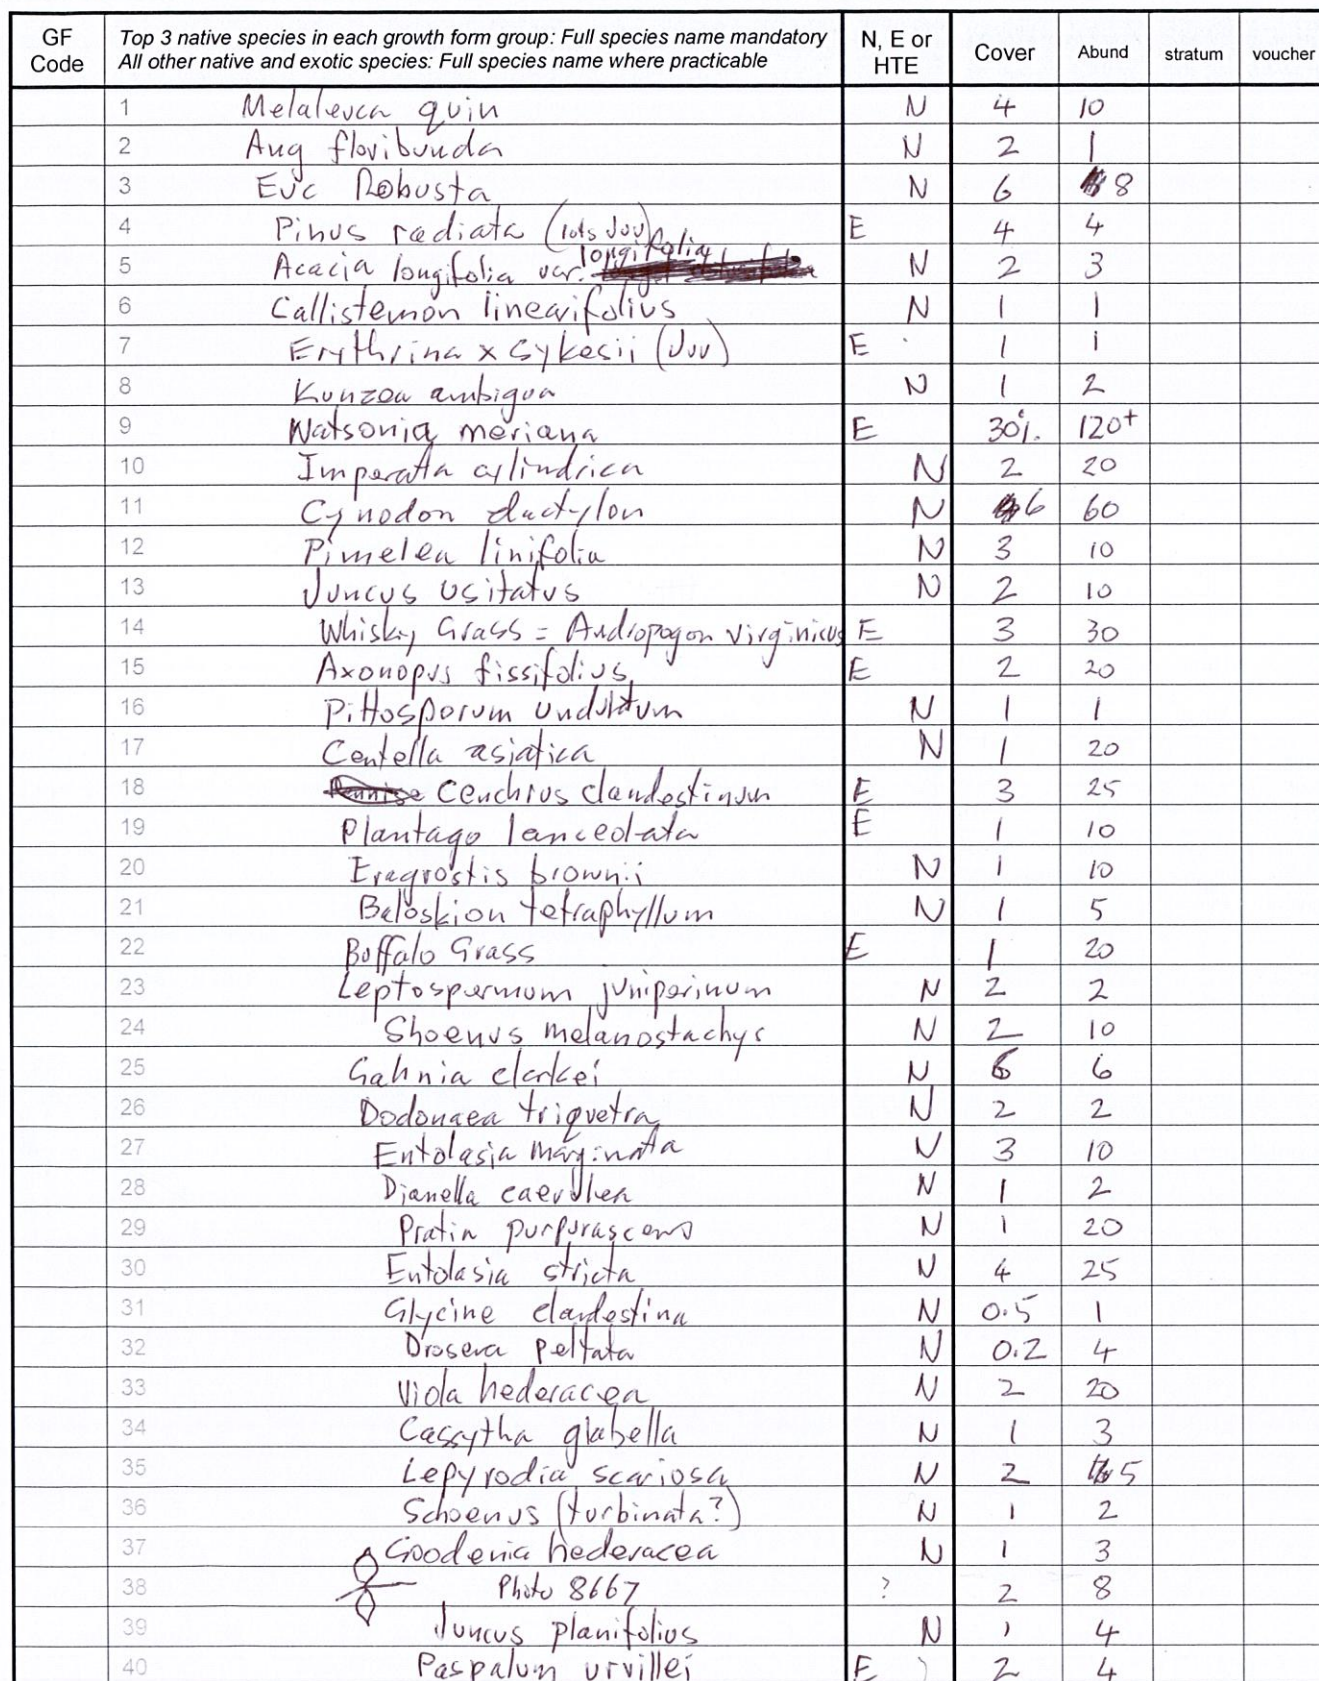 GF Code Top 3 native species in each growth form group: Full species name mandatory All other native and exotic species: Full species name where practicable N, E or HTE Cover Abund stratum voucher
1 Melaleuca quin N 4 10
2 Ang floribunda N 2 1
3 Euc Robusta N 6 8
4 Pinus radiata (lots Juv) E 4 4
5 Acacia longifolia var. longifolia N 2 3
6 Callistemon linearifolius N 1 1
7 Erythrina x Sykesii (Juv) E 1 1
8 Kunzea ambigua N 1 2
9 Watsonia meriana E 30% 120+
10 Imperata cylindrica N 2 20
11 Cynodon dactylon N 6 60
12 Pimelea linifolia N 3 10
13 Juncus usitatus N 2 10
14 Whisky Grass = Andropogon virginicus E 3 30
15 Axonopus fissifolius E 2 20
16 Pittosporum undulatum N 1 1
17 Centella asiatica N 1 20
18 Cenchrus clandestinum E 3 25
19 Plantago lanceolata E 1 10
20 Eragrostis brownii N 1 10
21 Baloskion tetraphyllum N 1 5
22 Buffalo Grass E 1 20
23 Leptospermum juniperinum N 2 2
24 Shoenus melanostachys N 2 10
25 Gahnia clarkei N 6 6
26 Dodonaea triquetra N 2 2
27 Entolasia marginata N 3 10
28 Dianella caerulea N 1 2
29 Pratia purpurascens N 1 20
30 Entolasia stricta N 4 25
31 Glycine clandestina N 0.5 1
32 Drosera peltata N 0.2 4
33 Viola hederacea N 2 20
34 Cassytha glabella N 1 3
35 Lepyrodia scariosa N 2 5
36 Schoenus (turbinata?) N 1 2
37 Goodenia hederacea N 1 3
38 Photo 8667 ? 2 8
39 Juncus planifolius N 1 4
40 Paspalum urvillei E 2 4